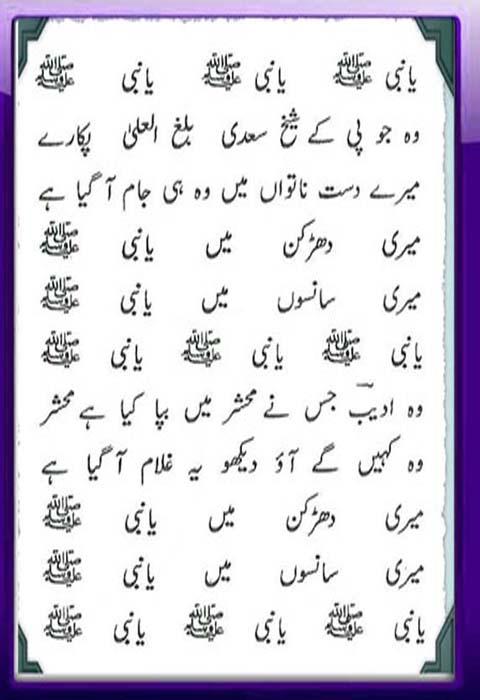 یا نبی ﷺ یا نبی ﷺ یا نبی ﷺ
وہ جو پی کے شیخ سعدی بلغ العلیٰ پکارے
میرے دست ناتواں میں وہ ہی جام آ گیا ہے
میری دھڑکن میں یا نبی ﷺ
میری سانسوں میں یا نبی ﷺ
یا نبی ﷺ یا نبی ﷺ یا نبی ﷺ
وہ ادیبؔ جس نے محشر میں بپا کیا ہے محشر
وہ کہیں گے آؤ دیکھو یہ غلام آ گیا ہے
میری دھڑکن میں یا نبی ﷺ
میری سانسوں میں یا نبی ﷺ
یا نبی ﷺ یا نبی ﷺ یا نبی ﷺ